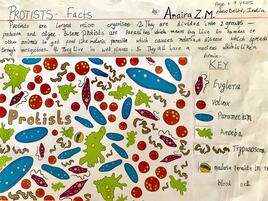 PROTISTS - Facts
by: Amaira Z.M.
Age - 9 years
New Delhi, India
1. Protists are largest micro organisms. 2. They are divided into 2 groups -
protozoa and algae. Some Protists are parasites which means they live by means of
other animals to get food like malaria parasite which causes malaria a disease which spreads
through 4. They live in wet places 5. They all have a nucleus which is like a
brain.
KEY
Euglena
Volvox
Paramecium
Amoeba
Trypanosoma
malaria parasite in red
blood cell
Protists